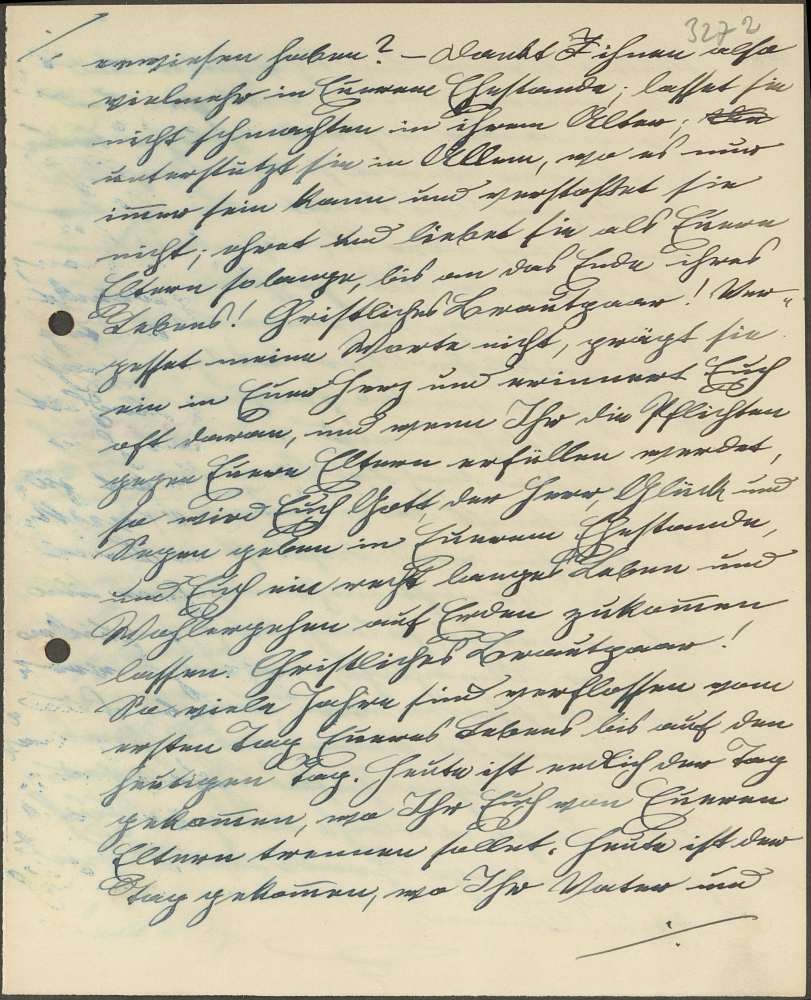 3272
./.
erwiesen haben? – Dankt ihnen also
vielmehr in Euerem Ehestande; lasset sie
nicht schmachten in ihrem Alter;
unterstützt sie in Allem, wo es nur
im̄er sein kann und verstoßet sie
nicht; ehret und liebet sie als Euere
Eltern solange, bis an das Ende ihres
Lebens! Christliches Brautpaar! Ver-
gesset meine Worte nicht, prägt sie
ein in Euer Herz und erinnert Euch
oft daran, und wenn Ihr die Pflichten
gegen Euere Eltern erfüllen werdet,
so wird Euch Gott, der Herr, Glück und
Segen geben in Euerem Ehestande,
und Euch ein recht langes Leben und
Wohlergehen auf Erden zukom̄en
lassen. Christliches Brautpaar!
So viele Jahre sind verflossen vom
ersten Tag Eueres Lebens bis auf den
heutigen Tag. Heute ist endlich der Tag
gekom̄en, wo Ihr Euch von Eueren
Eltern trennen sollet. Heute ist der
Tag gekom̄en, wo Ihr Vater und
./.